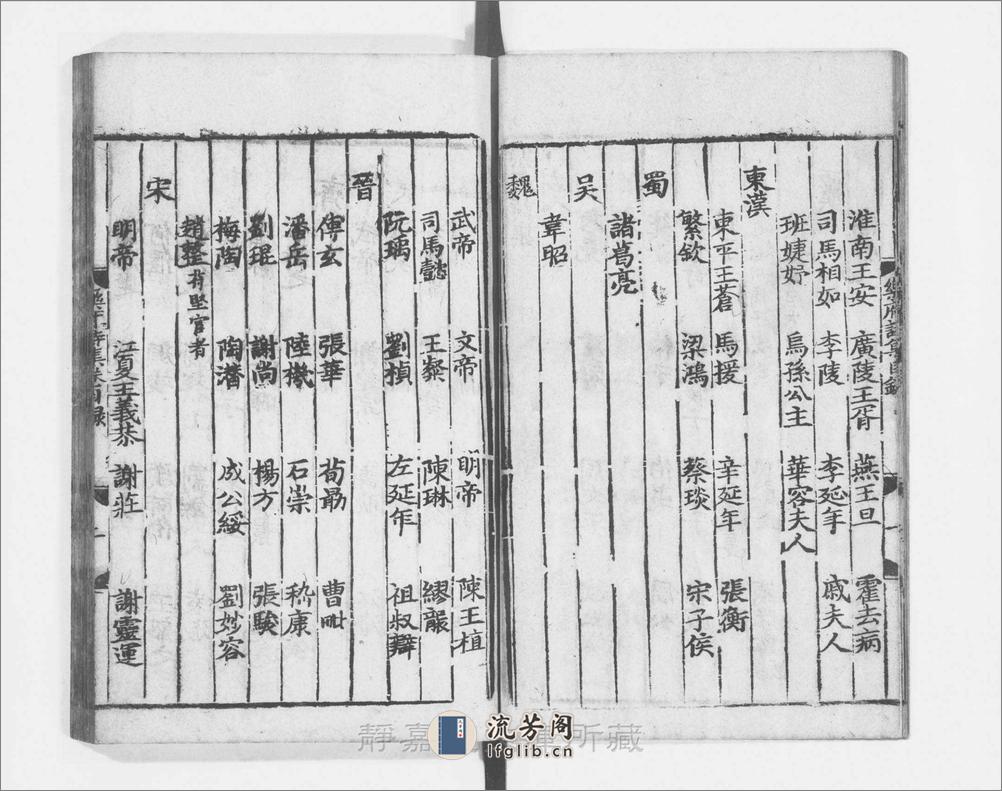 淮南王安 廣陵王胥 燕王旦 霍去病
司馬相如 李陵 李延年 戚夫人
班婕妤 烏孫公主 華容夫人
東漢
東平王蒼 馬援 辛延年 張衡
繁欽 梁鴻 蔡琰 宋子侯
蜀
諸葛亮
吳
韋昭
魏
武帝 文帝 明帝 陳王植
司馬懿 王粲 陳琳 繆襲
阮瑀 劉楨 左延年 祖叔辯
晉
傅玄 張華 荀勗 曹毗
潘岳 陸機 石崇 嵇康
劉琨 謝尚 楊方 張駿
梅陶 陶潛 成公綏 劉妙容
趙整 苻堅宦者
宋
明帝 江夏王義恭 謝莊 謝靈運
流芳阁
lfglib.cn
靜嘉 所藏